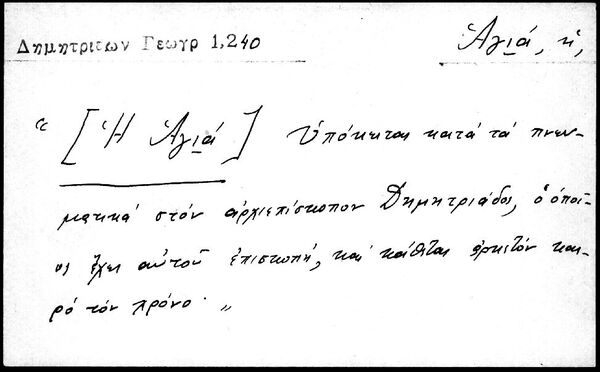 Δημητριεων Γεωγρ 1,240
Ἁγιά, ἡ,
“ [Ἡ Ἁγιά] Ὑπόκειται κατά τά πνευ-
ματικά στόν ἀρχιεπίσκοπον Δημητριάδος, ὁ ὁποῖ-
ος ἔχει αὐτοῦ ἐπισκοπή, καί κάθεται ἀρκετόν και-
ρό τόν χρόνο. „